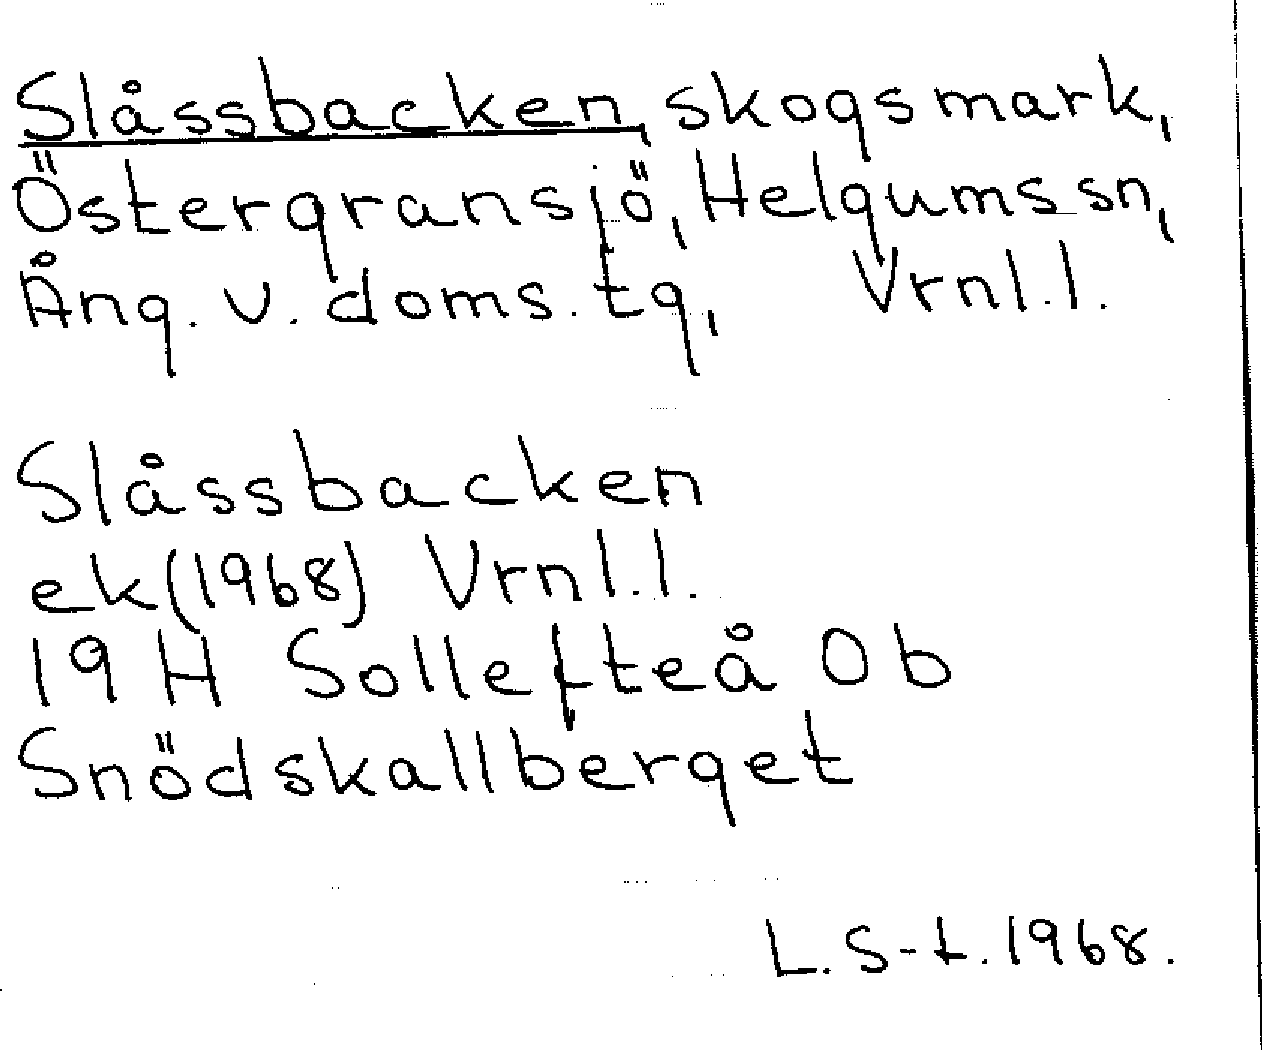 Slåssbacken, skogsmark,
Östergransjö, Helgums sn,
Ång. v. doms. tg, Vrnl.l.
Slåssbacken
ek(1968) Vrnl.l.
19 H Sollefteå 0b
Snödskallberget
L. S-t. 1968.